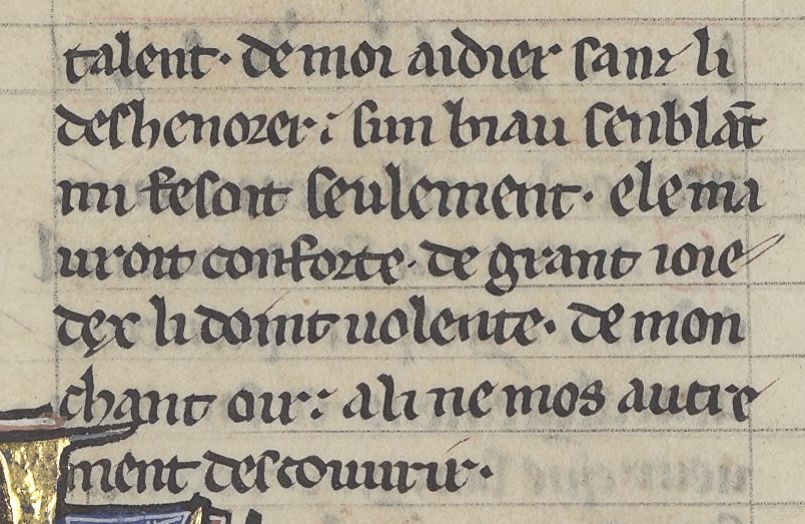 talent· de moi aidier sanz li
deshenorer: sun biau senblāt
mi fesoit seulement· ele ma
uroit conforte· de grant ioie
dex li doint uolente· de mon
chant oir: a li ne mos autre
ment descouurir·